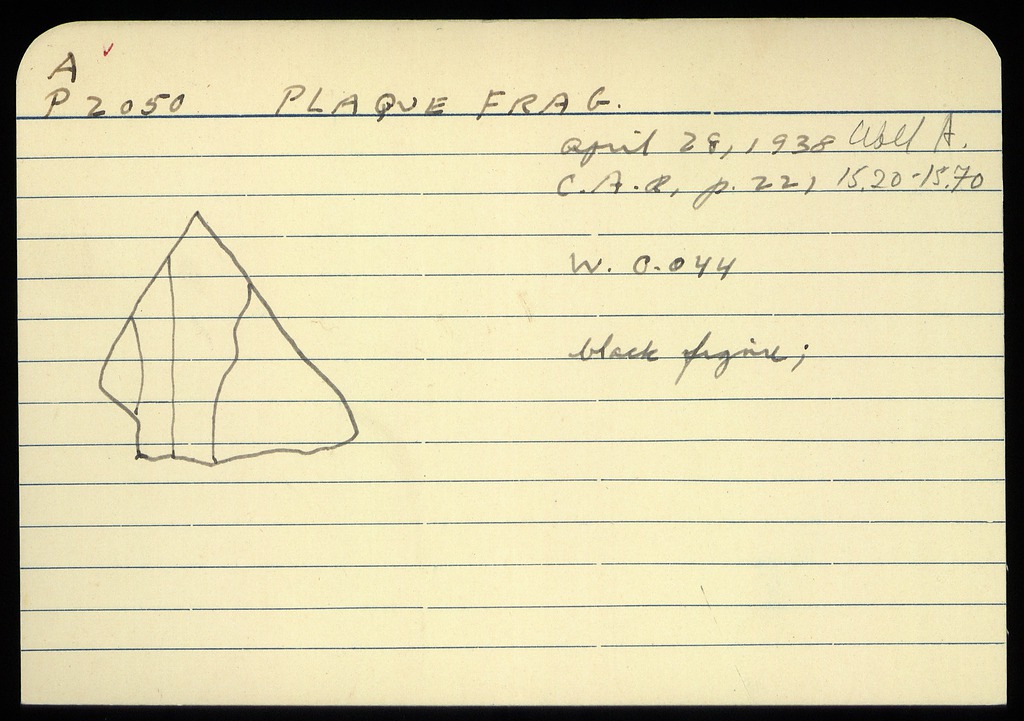 A
P 2050 PLAQUE FRAG.
April 28, 1938 Well A.
C.A.R, p. 221 15.20-15.70
W. 0.044
black figure;